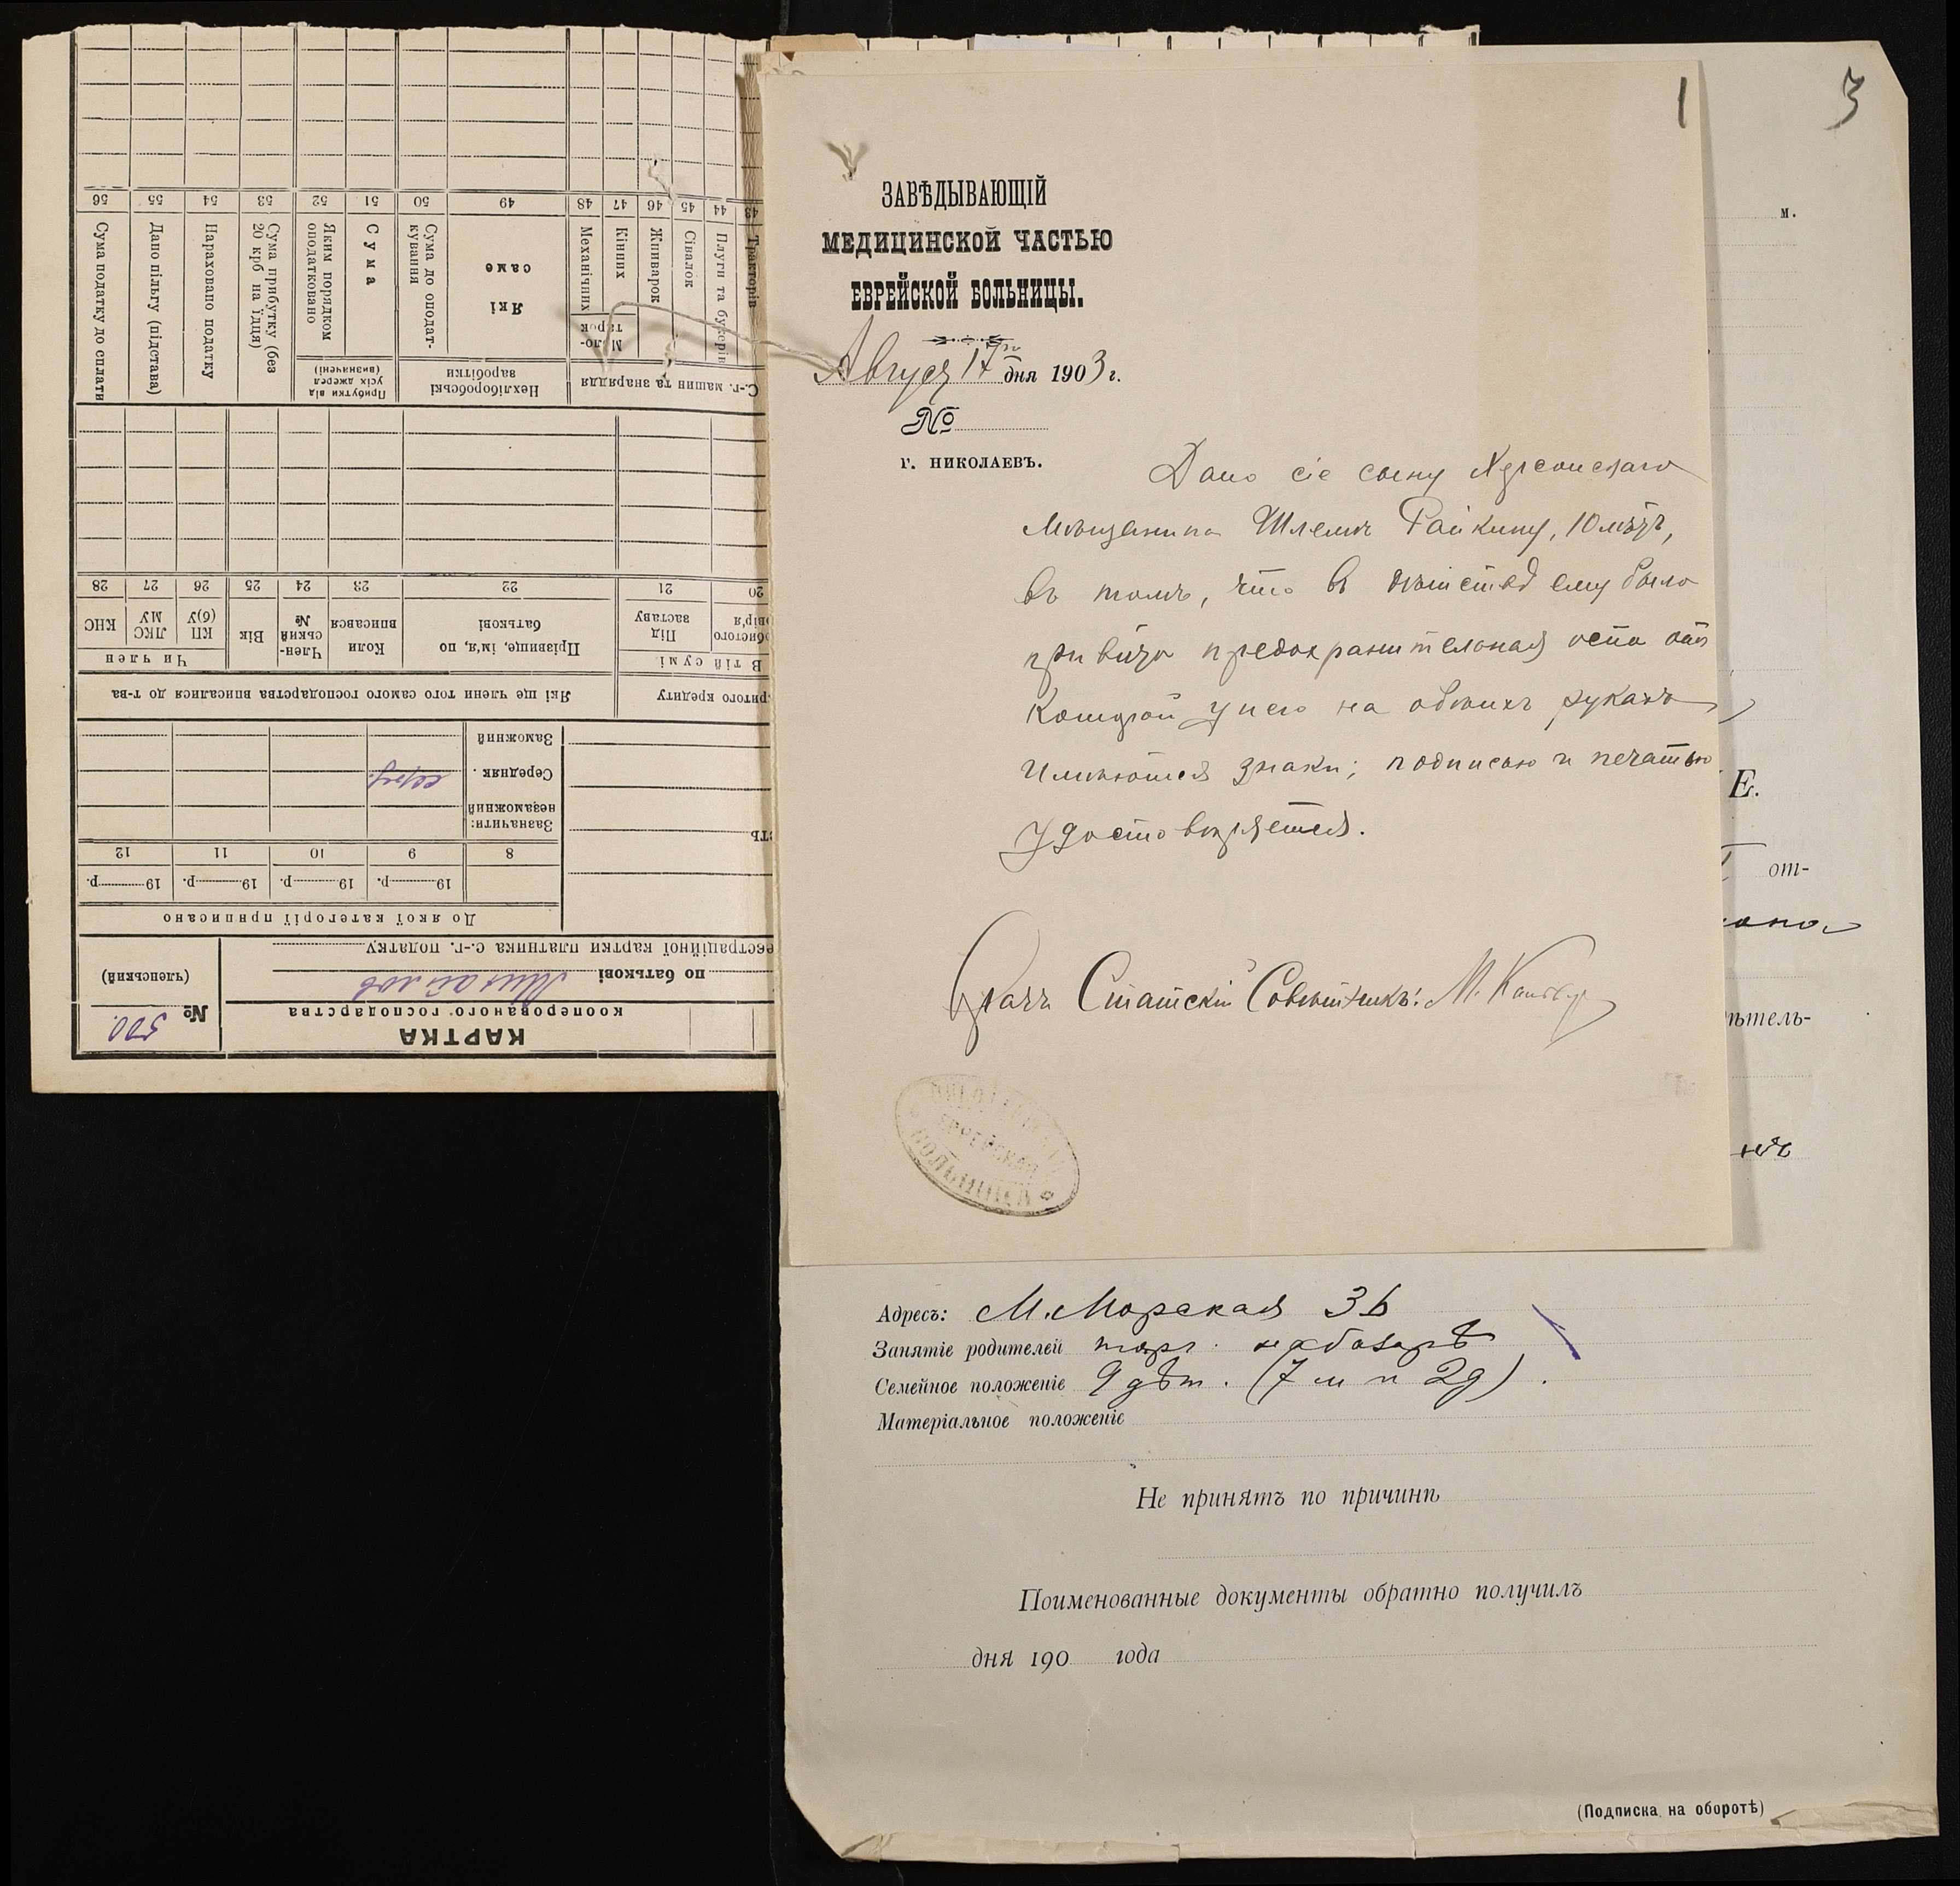 1
3
ЗАВѢДЫВАЮЩІЙ
МЕДИЦИНСКОЙ ЧАСТЬЮ
ЕВРЕЙСКОЙ БОЛЬНИЦЫ.
Август 17го дня 1903 г.
№
г. НИКОЛАЕВЪ.
Дано сіе сыну Херсонскаго
Мѣщанина Шлемѣ Райкину, 10 лѣтъ,
въ томъ, что въ дѣтствѣ ему была
привита предохранительная оспа отъ
Которой у него на обѣихъ рукахъ
Имѣются знаки; подписью и печатью
Удостовѣряется.
Врачъ Статскій Совѣтникъ: М.
ЕВРЕЙСКАЯ
м.
Е.
от-
ѣтель-
Адресъ: М. Морская 36
Занятіе родителей торг. на базарѣ
Семейное положеніе 9 дѣт. (7 м и 2 д).
Матеріальное положеніе
Не принятъ по причинѣ
Поименованные документы обратно получилъ
дня 190 года
(Подписка на оборотѣ)
КАРТКА
кооперованого господарства
№ 500.
(членський)
Михайлов по батькові
еєстраційної картки платника с.-г. податку
До якої категорії приписано
19 р. 19 р. 19 р. 19 р.
8 9 10 11 12
Зазначити:
незаможний
Середняк . серед.
Заможний
ритого кредиту
Які ще члени того самого господарства вписалися до т-ва
В тій сумі
Чи член
обистого
овір'я
Під
заставу
Прізвище, ім'я, по
батькові
Коли
вписався
Член-
ський
№
Вік
КП
(б)У
ЛКС
МУ
КНС
20 21 22 23 24 25 26 27 28
С.-г. машин та знаряддя
Нехліборобські
заробітки
Прибутки від
усіх джерел
(визначені)
Тракторів
Плуги та букерів
Сівалок
Жниварок
Моло-
тарок
Кінних
Механічних
Які
саме
Сума до оподат-
кування
Сума
Яким порядком
оподатковано
Сума прибутку (без
20 крб на їдця)
Нараховано податку
Дано пільгу (підстава)
Сума податку до сплати
43 44 45 46 47 48 49 50 51 52 53 54 55 56